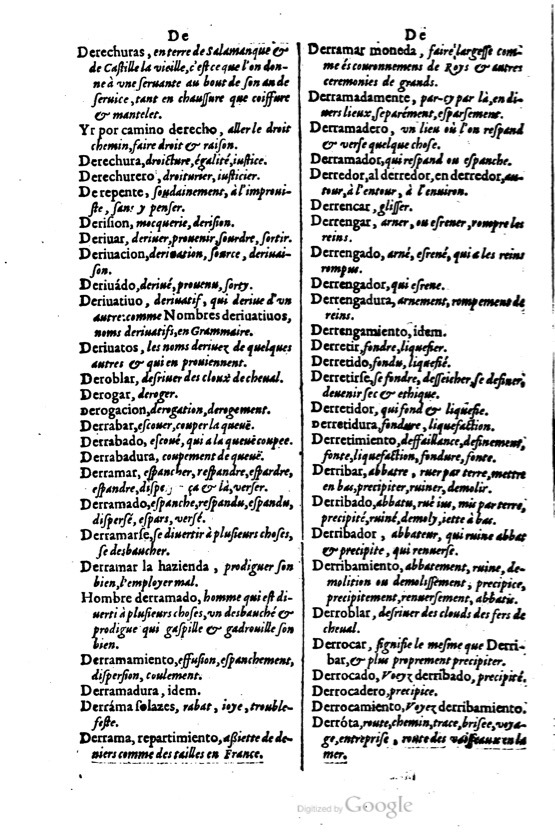 De
Derechuras, en terre de Salamanque &
de Castille la vieille, c'est ce que l'on don-
ne à vne seruante au bout de son an de
seruice, tant en chaussure que coiffure
& mantelet.
Yr por camino derecho, aller le droit
chemin, faire droit & raison.
Derechura, droicture, égalité, iustice.
Derechurero, droiturier, iusticier.
De repente, soudainement, à l'improui-
ste, sans y penser.
Derision, mocquerie, derision.
Deriuar, deriuer, prouenir, sourdre, sortir.
Deriuacion, deriuation, source, deriuai-
son.
Deriuádo, deriué, prouenu, sorty.
Deriuatiuo, deriuatif, qui deriue d'vn
autre: comme Nombres deriuatiuos,
noms deriuatifs, en Grammaire.
Deriuatos, les noms deriuez de quelques
autres & qui en prouiennent.
Deroblar, desriuer des clouz de cheual.
Derogar, deroger.
Derogacion, derogation, derogement.
Derrabar, escouer, couper la queuë.
Derrabado, escoué, qui a la queuë coupee.
Derrabadura, coupement de queuë.
Derramar, espancher, respandre, espardre,
espandre, çà & là, verser.
Derramado, espanché, respandu, espandu,
dispersé, espars, versé.
Derramarse, se diuertir à plusieurs choses,
se desbaucher.
Derramar la hazienda, prodiguer son
bien, l'employer mal.
Hombre derramado, homme qui est di-
uerti à plusieurs choses, vn desbauché &
prodigue qui gaspille & gadrouille son
bien.
Derramamiento, effusion, espanchement,
dispersion, coulement.
Derramadura, idem.
Derráma solazes, rabat, ioye, trouble-
feste.
Derrama, repartimiento, assiette de de-
niers comme des tailles en France.
De
Derramar moneda, faire largesse com-
me és couronnemens de Roys & autres
ceremonies de grands.
Derramadamente, par-cy par là, en di-
uers lieux, separément, esparsement.
Derramadero, vn lieu où l'on respand
& verse quelque chose.
Derramador, qui respand ou espanche.
Derredor, al derredor, en derredor, au-
tour, à l'entour, à l'enuiron.
Derrencar, glisser.
Derrengar, arner, ou esrener, rompre les
reins.
Derrengado, arné, esrené, qui a les reins
rompus.
Derrengador, qui esrene.
Derrengadura, arnement, rompement de
reins.
Derrengamiento, idem.
Derretir, fondre, liquefier.
Derretido, fondu, liquefié.
Derretirse, se fondre, desseicher, se definer,
deuenir sec & ethique.
Derretidor, qui fond & liquefie.
Derretidura, fondure, liquefaction.
Derretimiento, deffaillance, definement,
fonte, liquefaction, fondure, fonte.
Derribar, abbatre, ruer par terre, mettre
en bas, precipiter, ruiner, demolir.
Derribado, abbatu, rué ius, mis par terre,
precipité, ruiné, demoly, ietté à bas.
Derribador, abbateur, qui ruine abbat
& precipite, qui renuerse.
Derribamiento, abbatement, ruine, de-
molition ou demolissement, precipice,
precipitement, renuersement, abbatis.
Derroblar, desriuer des clouds des fers de
cheual.
Derrocar, signifie le mesme que Derri-
bar, & plus proprement precipiter.
Derrocado, Voyez derribado, precipité.
Derrocadero, precipice.
Derrocamiento, Voyez derribamiento.
Derróta, route, chemin, trace, brisee, voya-
ge, entreprise, route des vaisseaux en la
mer.
Digitized by Google